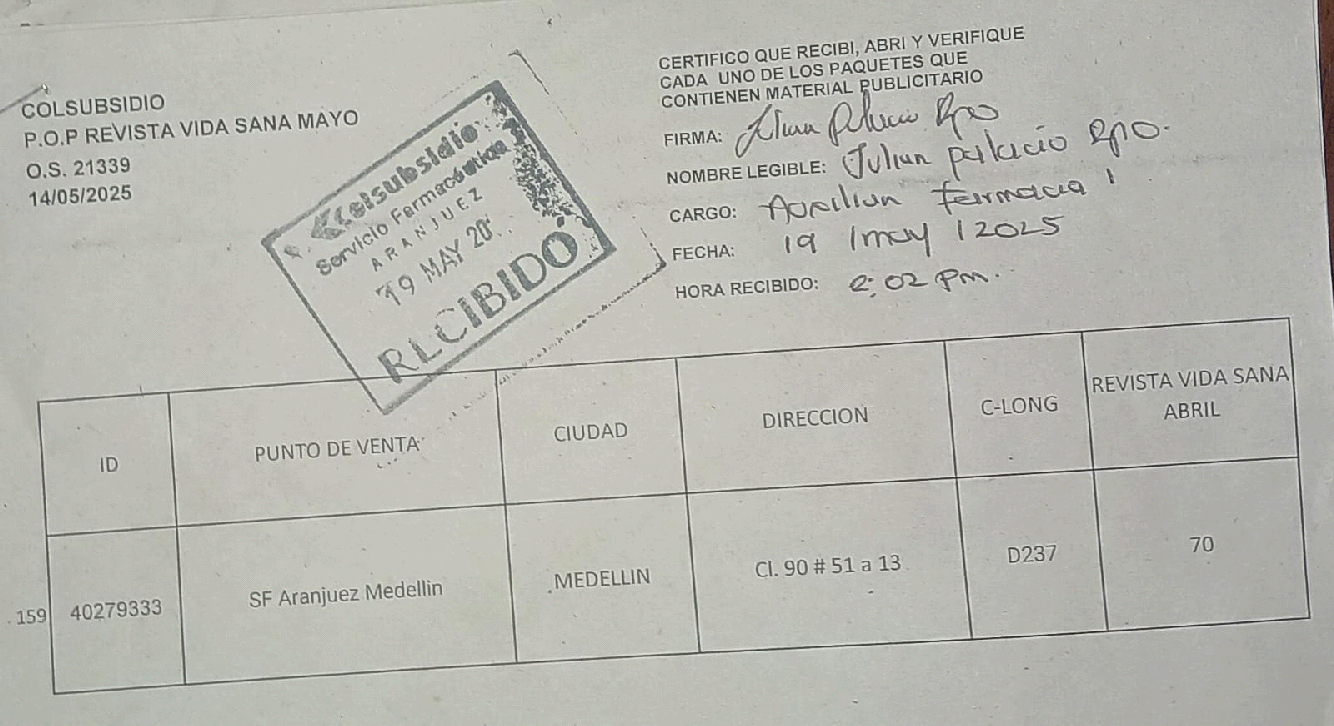 COLSUBSIDIO
P.O.P REVISTA VIDA SANA MAYO
O.S. 21339
14/05/2025
Colsubsidio
Servicio Farmacéutico
ARANJUEZ
19 MAY 20
RECIBIDO
CERTIFICO QUE RECIBI, ABRI Y VERIFIQUE
CADA UNO DE LOS PAQUETES QUE
CONTIENEN MATERIAL PUBLICITARIO
FIRMA: Julian Palacio Rpo
NOMBRE LEGIBLE: Julian palacio Rpo.
CARGO: Auxiliar farmacia
FECHA: 19 / may / 2025
HORA RECIBIDO: 2:02 pm.
ID PUNTO DE VENTA CIUDAD DIRECCION C-LONG REVISTA VIDA SANA
ABRIL
159 40279333 SF Aranjuez Medellin MEDELLIN Cl. 90 # 51 a 13 D237 70